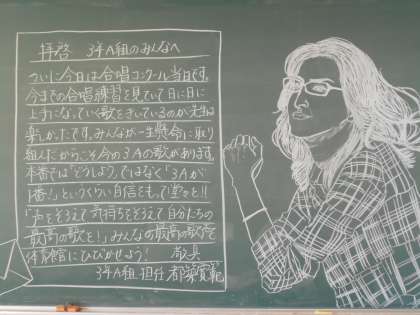 拝啓 3年A組のみんなへ
ついに今日は合唱コンクール当日です。
今までの合唱練習を見ていて日に日に
上手になっていく歌をきいているのが先生は
楽しかったです。みんなが一生懸命に取り
組んだからこそ今の3Aの歌があります。
本番では「どうしよう…」ではなく「3Aが
1番!」というくらい自信をもって堂々と!!
「声をそろえて気持ちをそろえて自分たちの
最高の歌を!」みんなの最高の歌声を
体育館にひびかせよう! 敬具
3年A組 担任 都築寛範